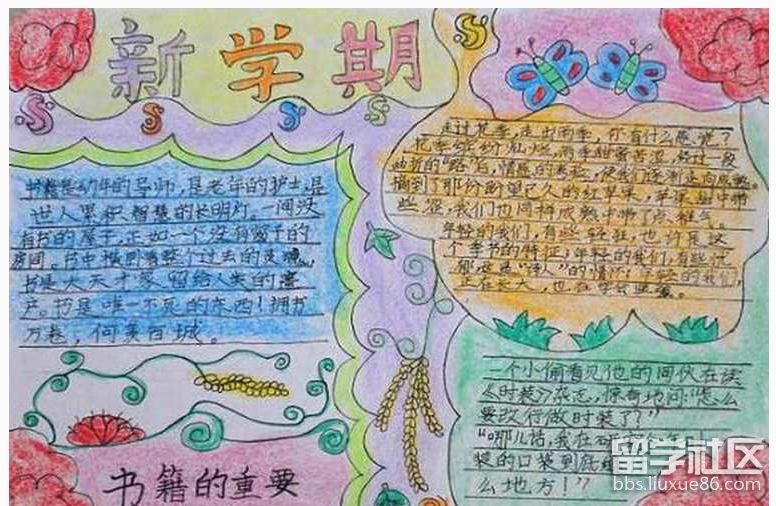 新学期
书籍是幼年的导师，是老年的护士，是
世人累积智慧的长明灯。一间没
有书的屋子，正如一个没有窗子的
房间。书中横卧着整个过去的灵魂。
书是大天才家留给人类的遗
产。书是唯一不死的东西！拥书
万卷，何美百城。
书籍的重要
走过花季，走出雨季，你有什么感觉？
花季缤纷灿烂，雨季甜蜜苦涩，经过一段
曲折的“路”后，情感的
摘到了那份盼望已久的红苹果，苹果甜中带
些涩，我们也同样成熟中带了点稚气。
年轻的我们，有些轻狂，也许是这
个季节的特征；年轻的我们，有些忧
郁，
正在长大，也在学会
一个小偷看见他的同伙在读
《时装》杂志，惊奇地问“怎么
要改行做时装了？”
“哪儿话，我在研
装的口袋到底
么地方！”
留学社区
bbs.liuxue86.com